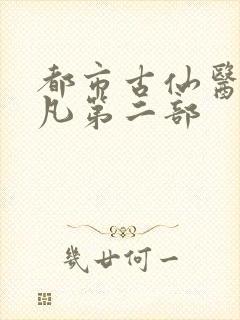 都市古仙醫
凡第二部
幾廿何一